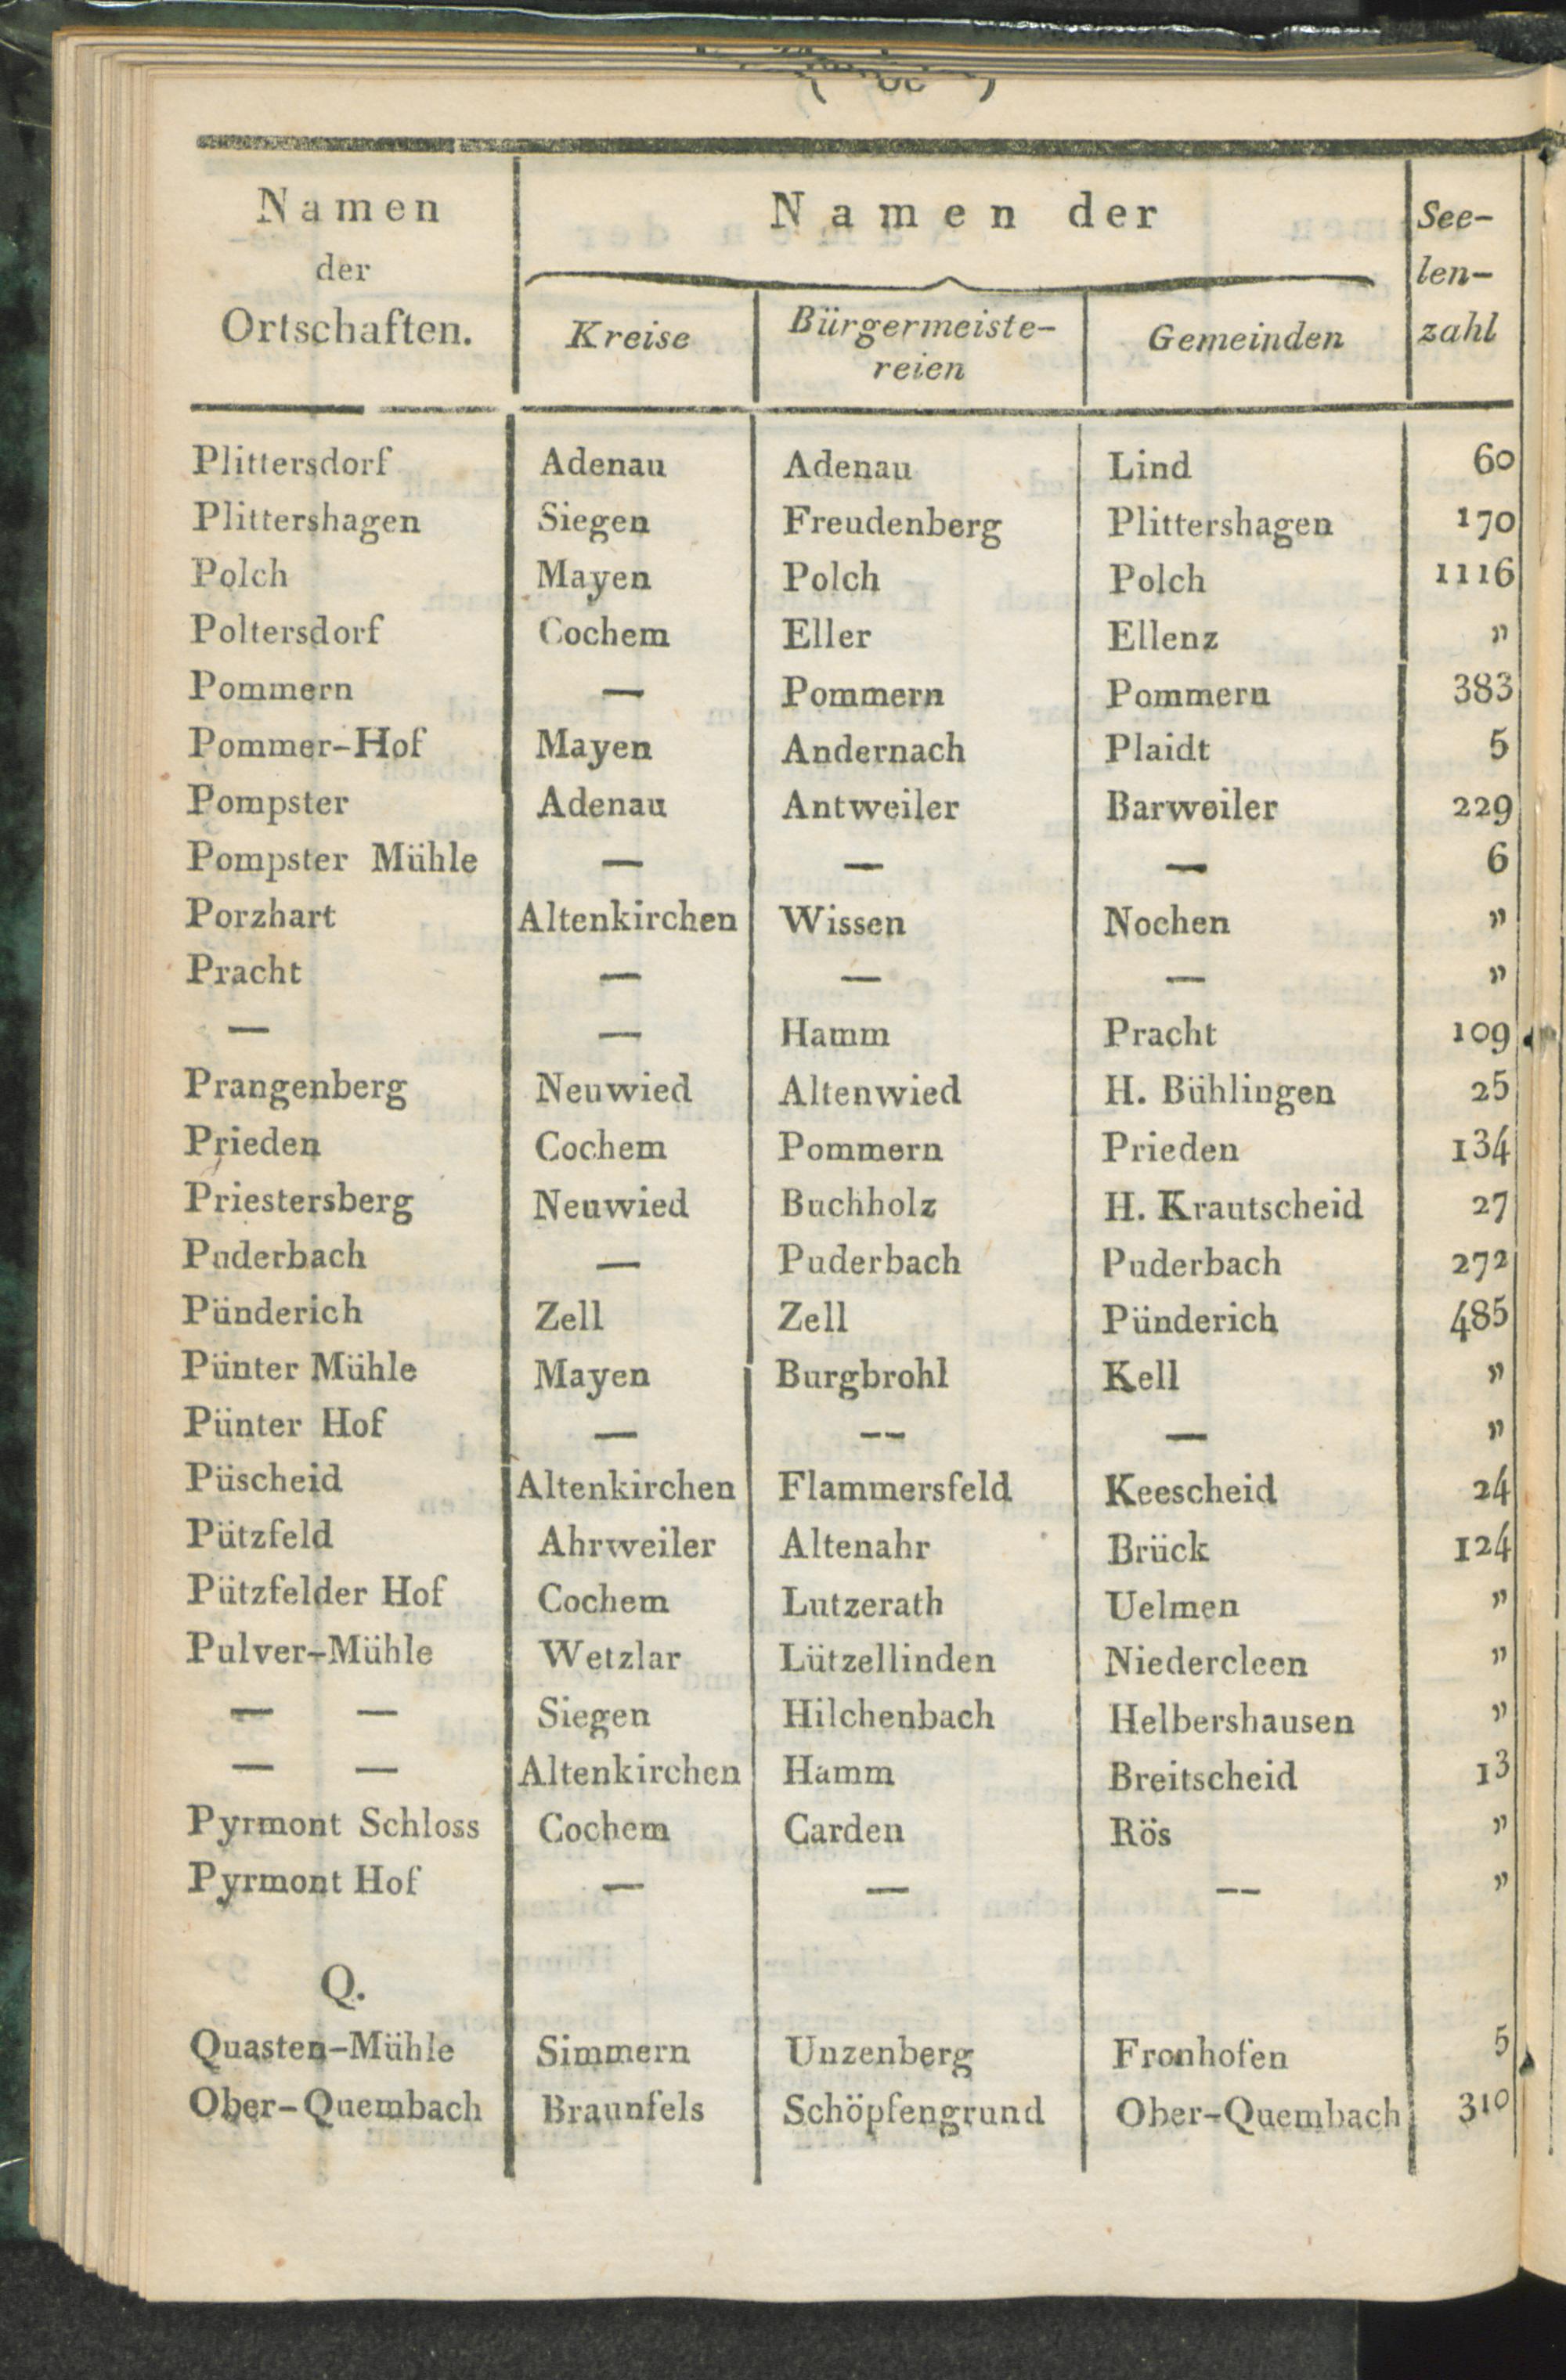 Namen der Ortschaften. | Namen der | Seelenzahl
Kreise | Bürgermeiste-reien | Gemeinden
Plittersdorf Adenau Adenau Lind 60
Plittershagen Siegen Freudenberg Plittershagen 170
Polch Mayen Polch Polch 1116
Poltersdorf Cochem Eller Ellenz "
Pommern — Pommern Pommern 383
Pommer-Hof Mayen Andernach Plaidt 5
Pompster Adenau Antweiler Barweiler 229
Pompster Mühle — — — 6
Porzhart Altenkirchen Wissen Nochen "
Pracht — — — "
— — Hamm Pracht 109
Prangenberg Neuwied Altenwied H. Bühlingen 25
Prieden Cochem Pommern Prieden 134
Priestersberg Neuwied Buchholz H. Krautscheid 27
Puderbach — Puderbach Puderbach 272
Pünderich Zell Zell Pünderich 485
Pünter Mühle Mayen Burgbrohl Kell "
Pünter Hof — — — "
Püscheid Altenkirchen Flammersfeld Keescheid 24
Pützfeld Ahrweiler Altenahr Brück 124
Pützfelder Hof Cochem Lutzerath Uelmen "
Pulver-Mühle Wetzlar Lützellinden Niedercleen "
— — Siegen Hilchenbach Helbershausen "
— — Altenkirchen Hamm Breitscheid 13
Pyrmont Schloss Cochem Carden Rös "
Pyrmont Hof — — — "
Q.
Quasten-Mühle Simmern Unzenberg Fronhofen 5
Ober-Quembach Braunfels Schöpfengrund Ober-Quembach 310